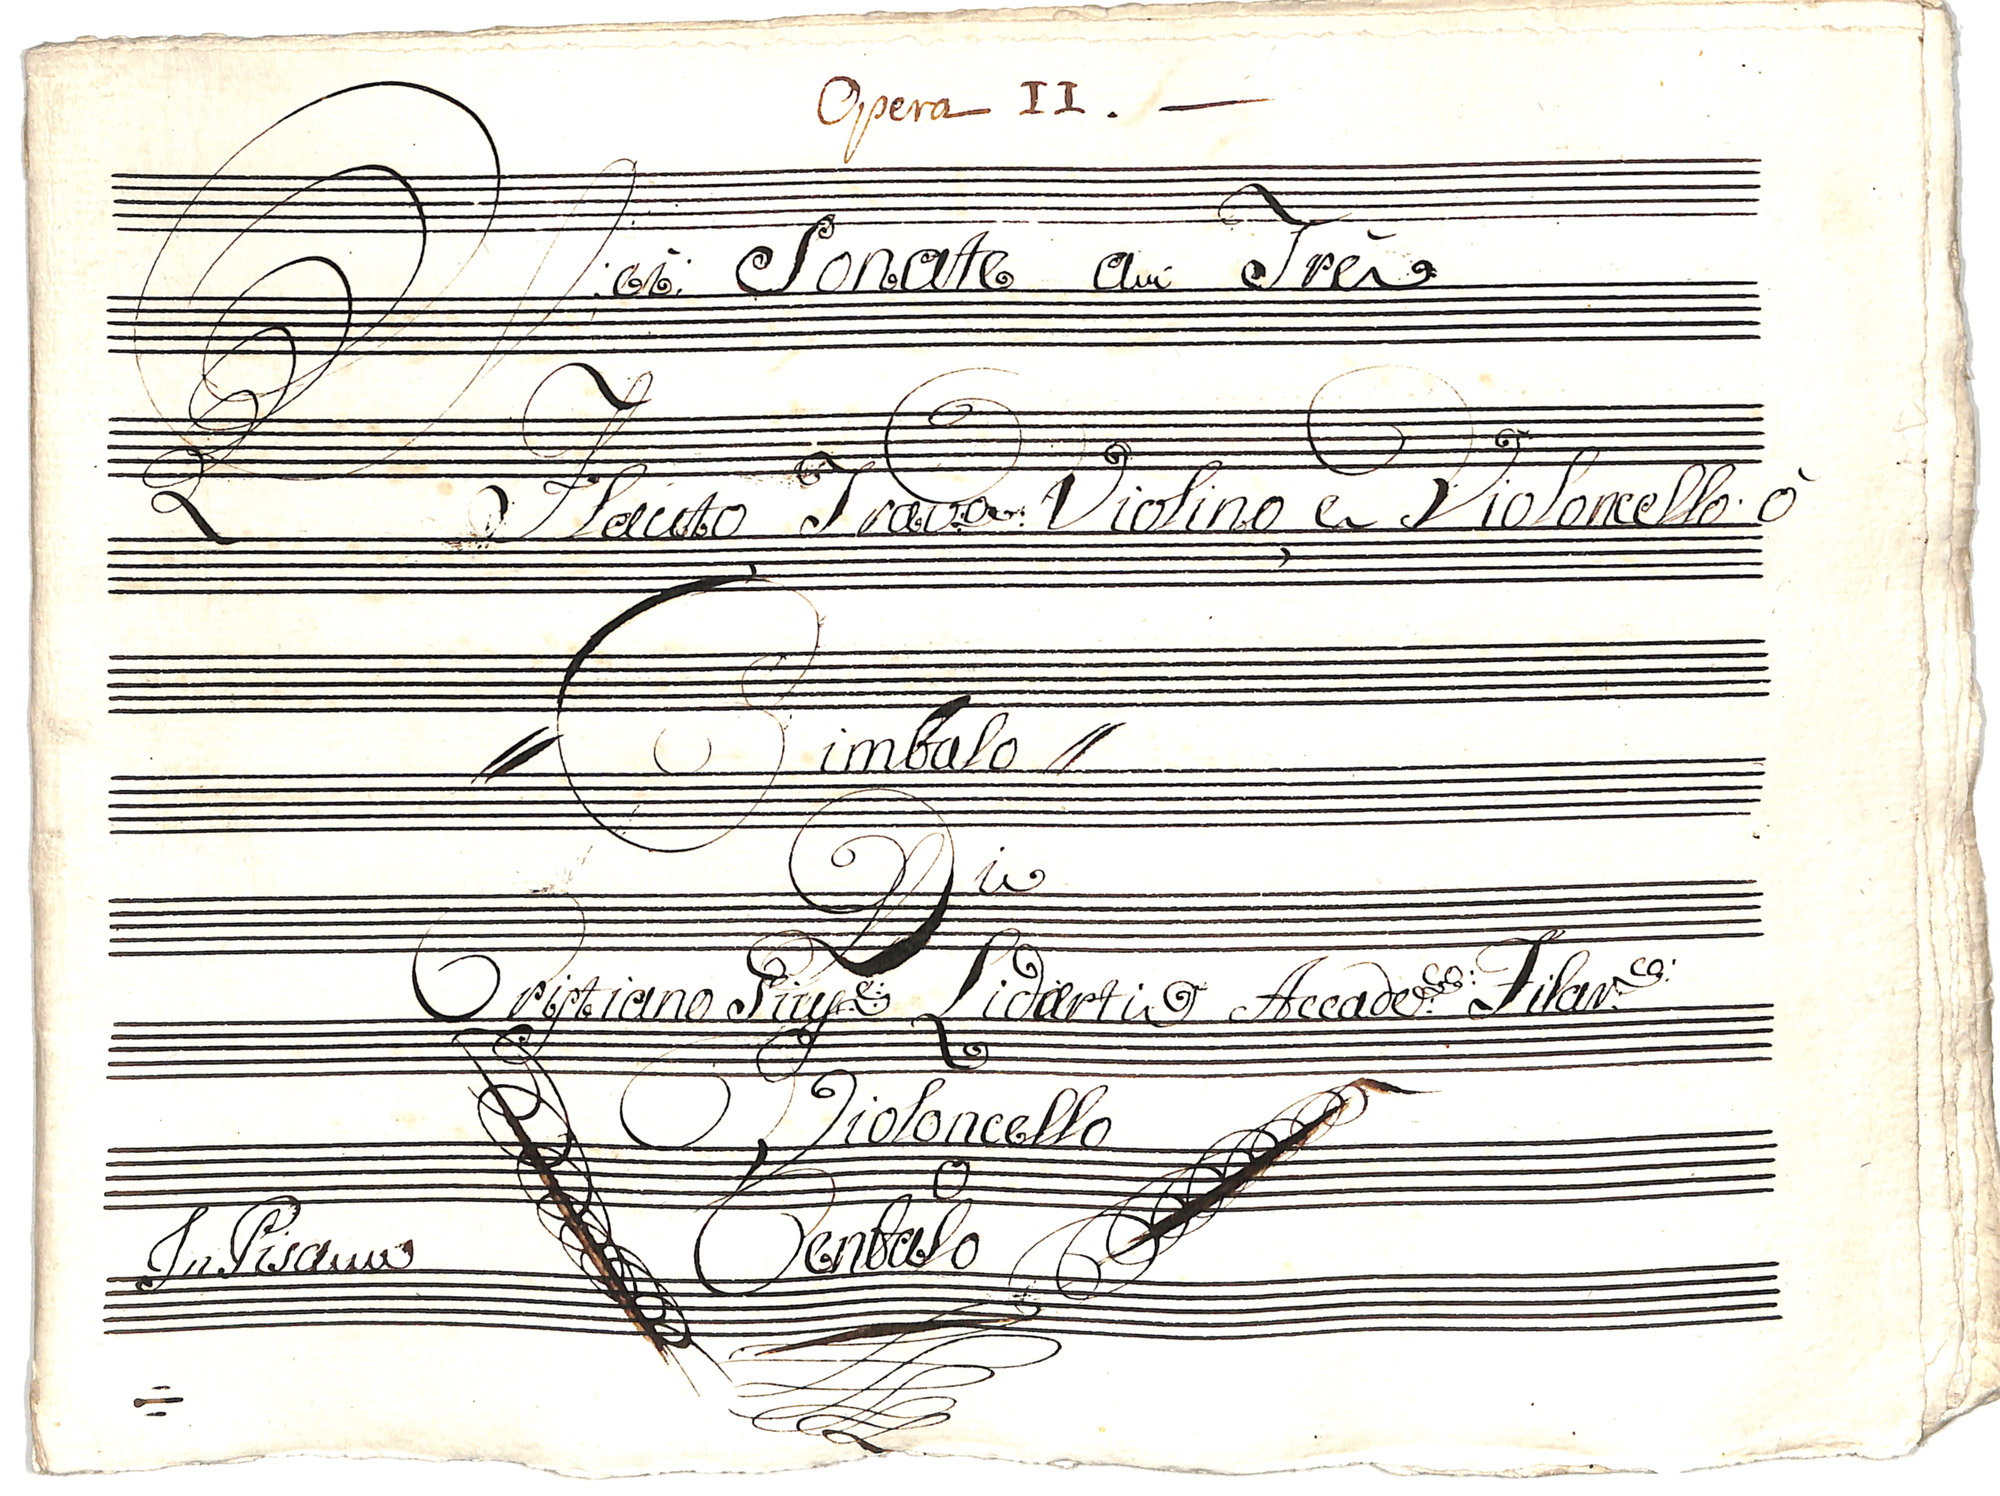 Opera II.
Sonate a Trè
Flauto Trava: Violino, e Violoncello. ò
Cimbalo
Di
Cristiano Lidarti Accade:co: Filar:co:
Violoncello
O
Cenbalo
In Pisa